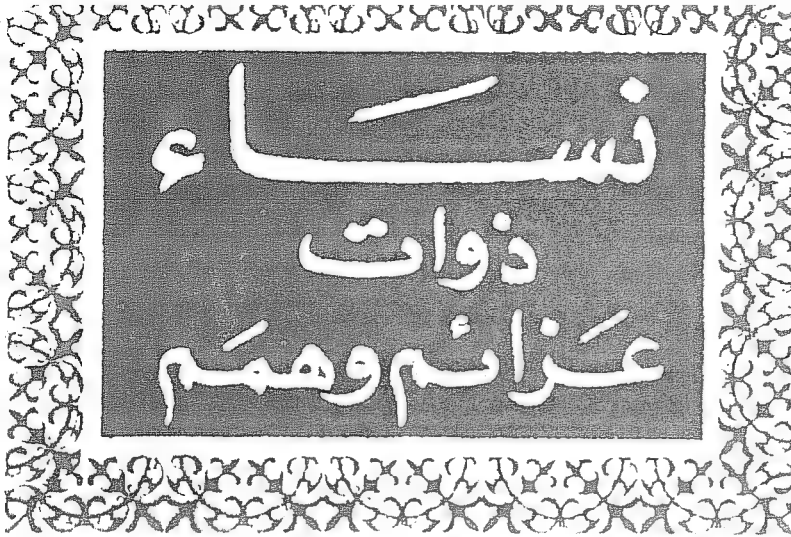 نسَاء
ذوات
عَزائم وهمَم